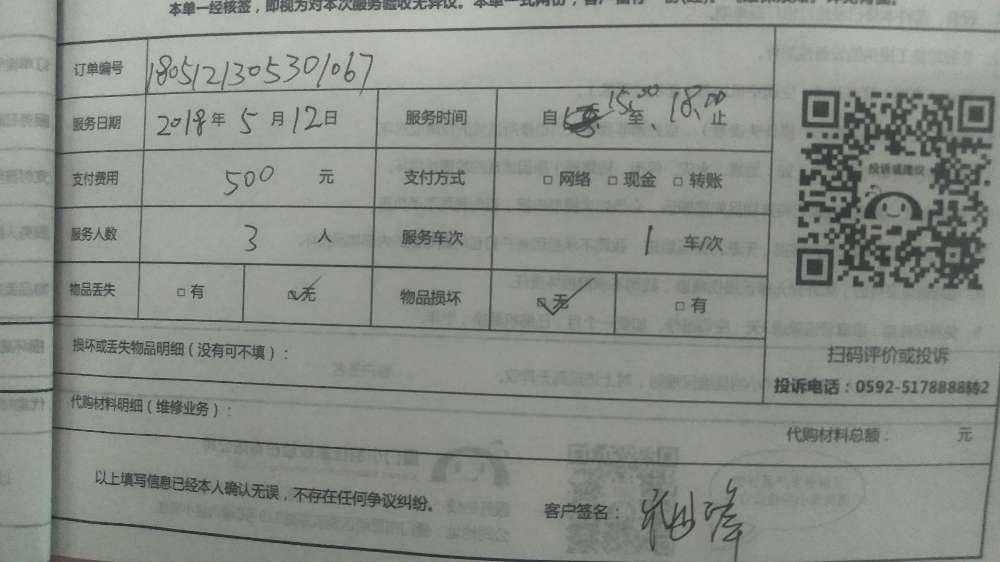 本单一经核签，即视为对本次服务验收无异议。本单一式两份，客户留存一份
订单编号 1805121305301067
服务日期 2018年 5月 12日 服务时间 自 15:00 至 18:00 止
支付费用 500 元 支付方式 □网络 □现金 □转账
服务人数 3 人 服务车次 1 车/次
物品丢失 □有 ☑无 物品损坏 ☑无 □有
损坏或丢失物品明细（没有可不填）：
代购材料明细（维修业务）：
代购材料总额： 元
以上填写信息已经本人确认无误，不存在任何争议纠纷。
客户签名：
投诉或建议
扫码评价或投诉
投诉电话：0592-5178888转2